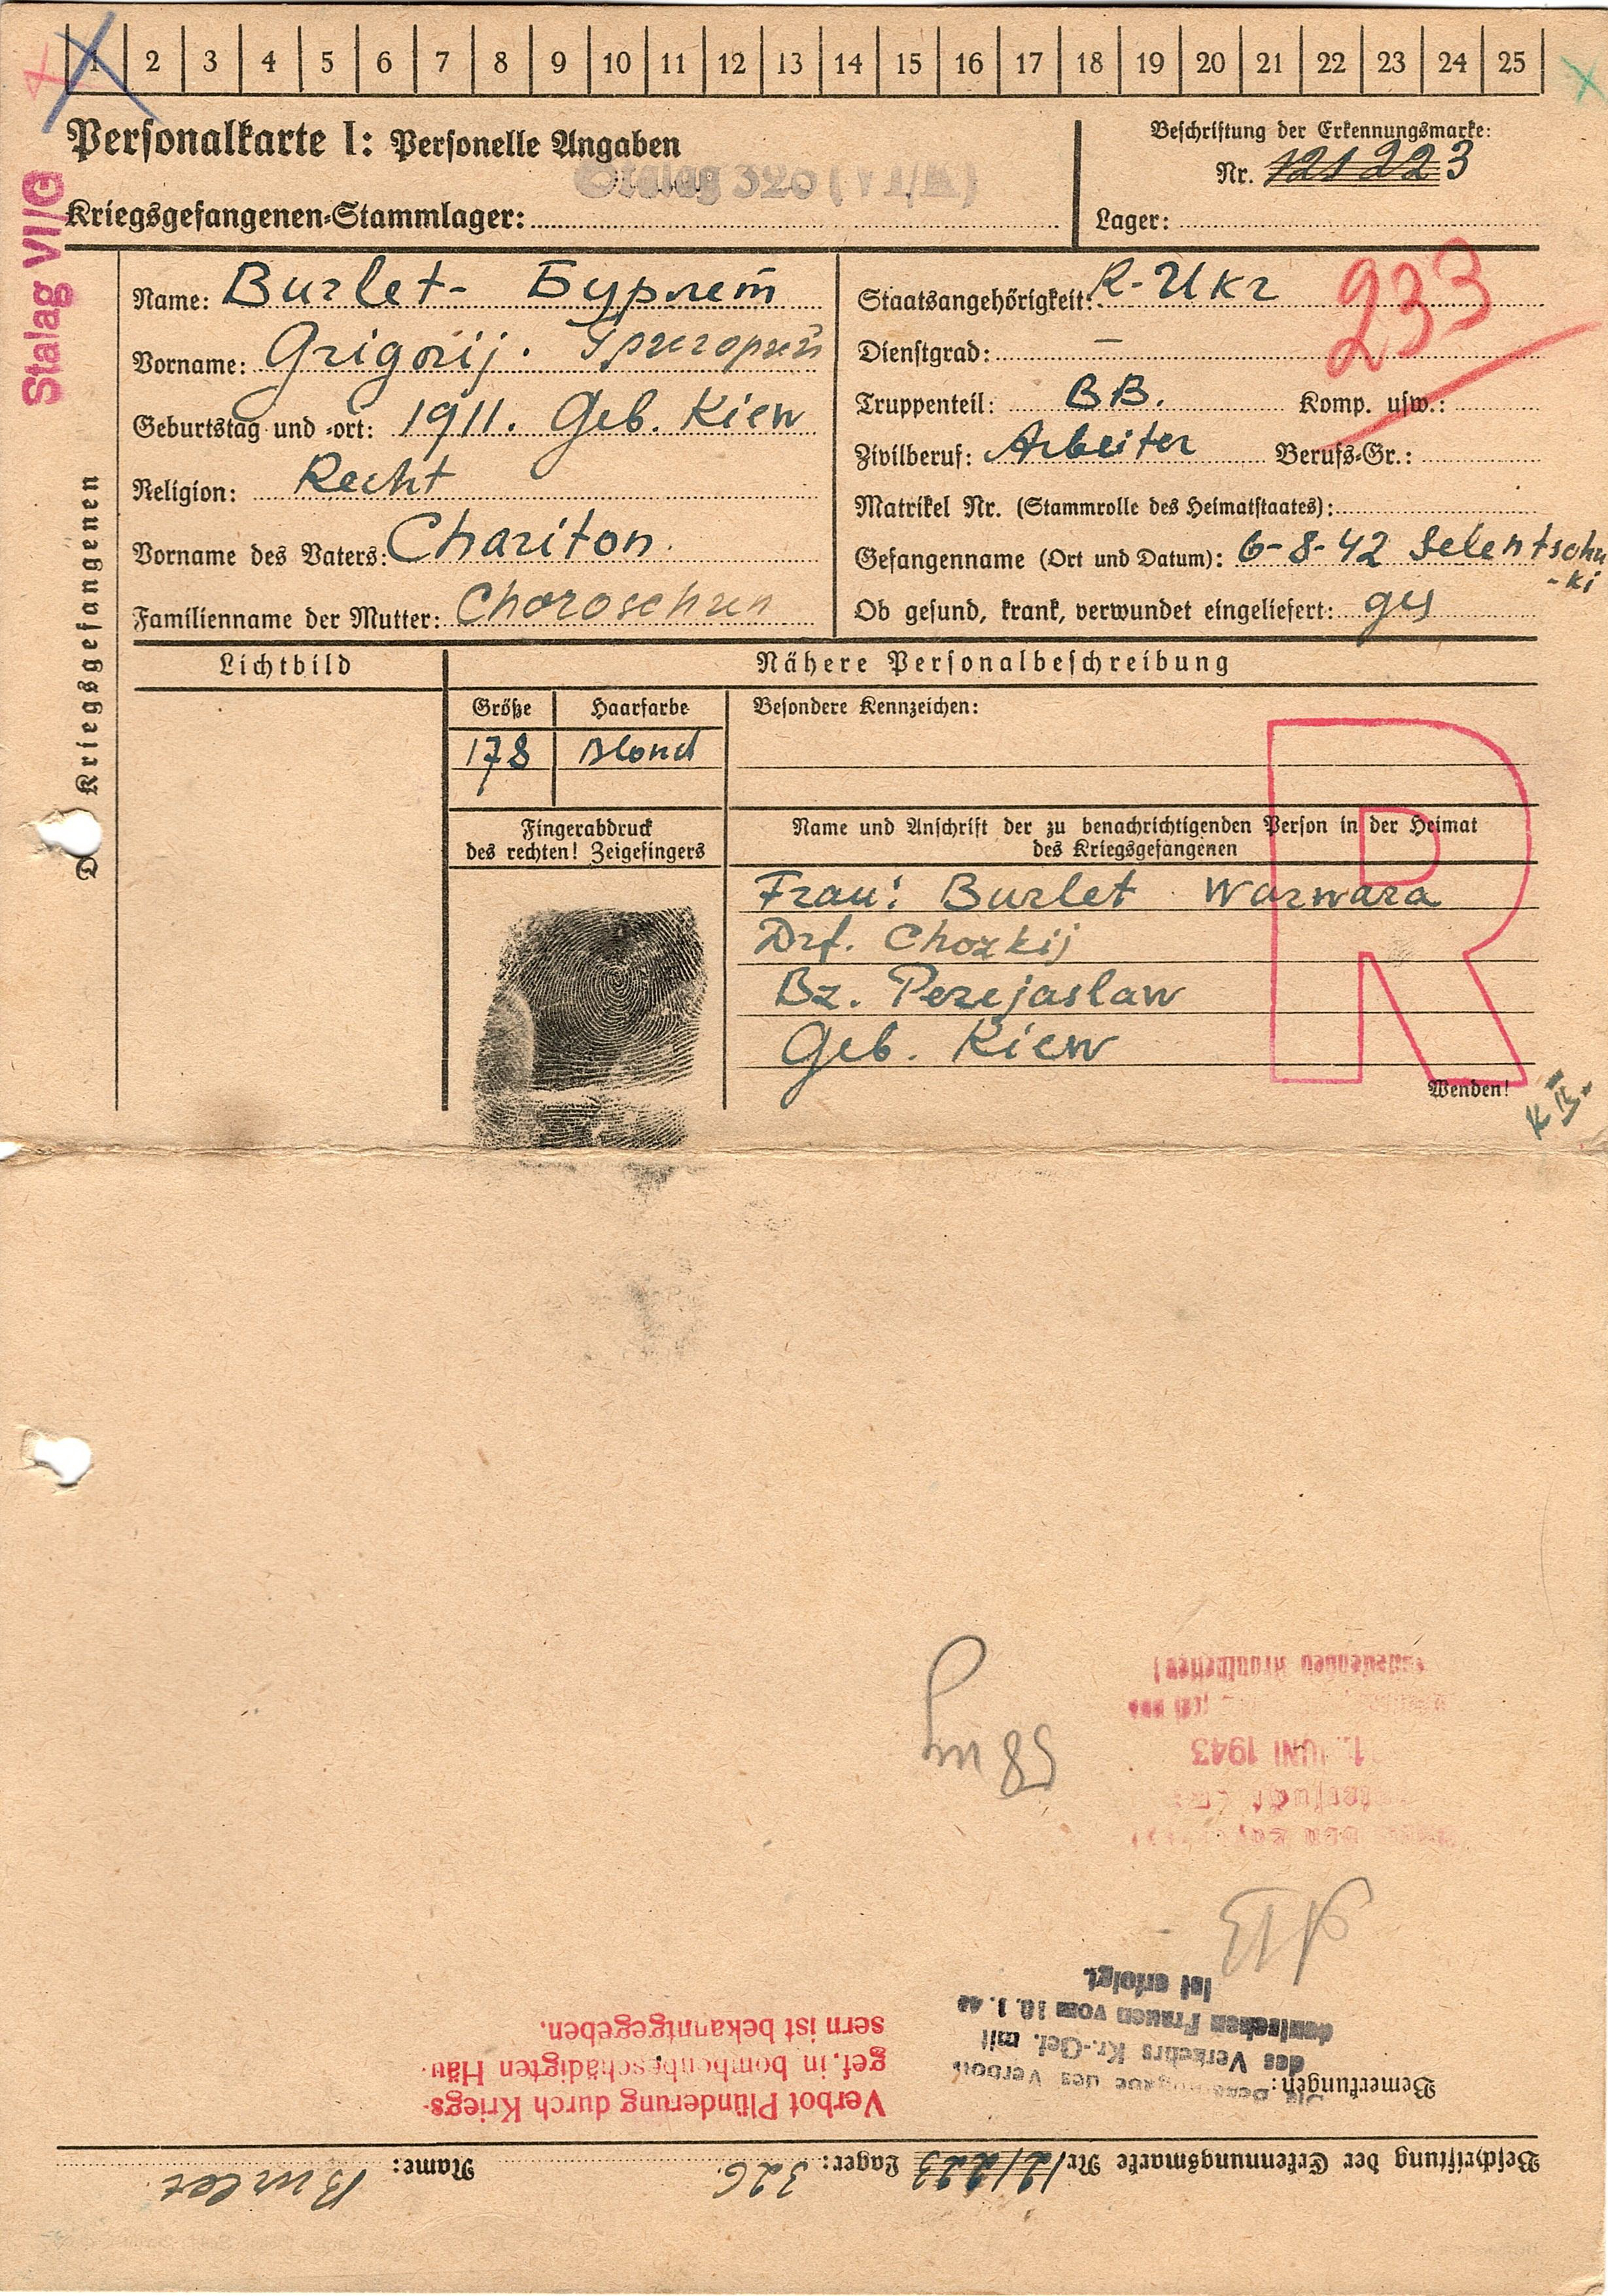 1 2 3 4 5 6 7 8 9 10 11 12 13 14 15 16 17 18 19 20 21 22 23 24 25
Personalkarte I: Personelle Angaben
Beschriftung der Erkennungsmarke:
Nr. 121223
Kriegsgefangenen-Stammlager: Stalag 326 (VI/K)
Lager:
Stalag VI/G
Kriegsgefangenen
Name: Burlet- Бурлет
Vorname: Grigorij. Григорий
Geburtstag und -ort: 1911. Geb. Kiew
Religion: Recht
Vorname des Vaters: Chariton.
Familienname der Mutter: Choroschun
Staatsangehörigkeit: R-Ukr
233
Dienstgrad: –
Truppenteil: BB. Komp. usw.:
Zivilberuf: Arbeiter Berufs-Gr.:
Matrikel Nr. (Stammrolle des Heimatstaates):
Gefangenname (Ort und Datum): 6-8-42 Selentschu
-ki
Ob gesund, krank, verwundet eingeliefert: ges
Lichtbild
Nähere Personalbeschreibung
Größe Haarfarbe
178 Blond
Besondere Kennzeichen:
Fingerabdruck
des rechten! Zeigefingers
Name und Anschrift der zu benachrichtigenden Person in der Heimat
des Kriegsgefangenen
Frau: Burlet Warwara
Drf. Chozkij
Bz. Perejaslaw
Geb. Kiew
R
Wenden!
Beschriftung der Erkennungsmarke Nr. 121223 Lager: 326. Name: Burlet
Bemerkungen:
des Verbots
des Verkehrs Kr.-Gef. mit
deutschen Frauen vom 10.1.42
ist erfolgt.
Verbot Plünderung durch Kriegs-
gef. in bombenbeschädigten Häu-
sern ist bekanntgegeben.
JUNI 1943